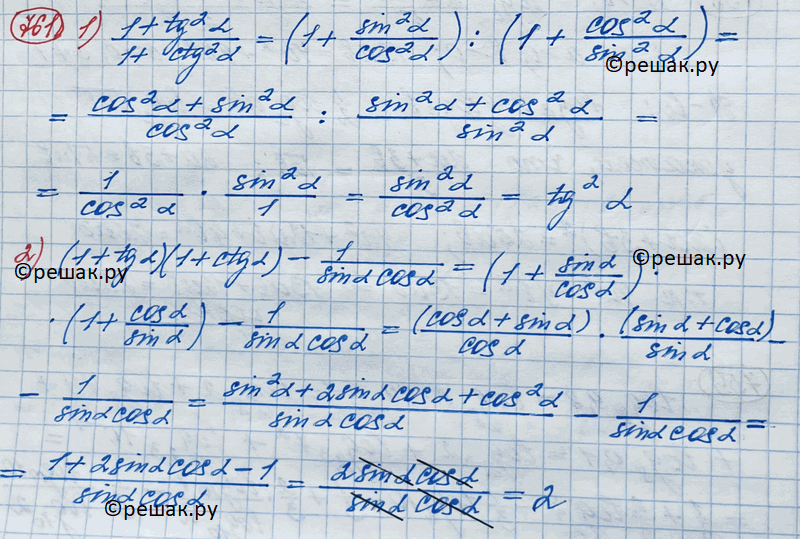 761. 1) (1 + tg²α)/(1 + ctg²α) = (1 + sin²α/cos²α) : (1 + cos²α/sin²α) =
©решак.ру
= (cos²α + sin²α)/cos²α : (sin²α + cos²α)/sin²α =
= 1/cos²α · sin²α/1 = sin²α/cos²α = tg²α
2) (1 + tgα)(1 + ctgα) − 1/(sinα cosα) = (1 + sinα/cosα) ·
©решак.ру ©решак.ру
· (1 + cosα/sinα) − 1/(sinα cosα) = (cosα + sinα)/cosα · (sinα + cosα)/sinα −
− 1/(sinα cosα) = (sin²α + 2sinα cosα + cos²α)/(sinα cosα) − 1/(sinα cosα) =
= (1 + 2sinα cosα − 1)/(sinα cosα) = (2sinα cosα)/(sinα cosα) = 2
©решак.ру ©решак.ру